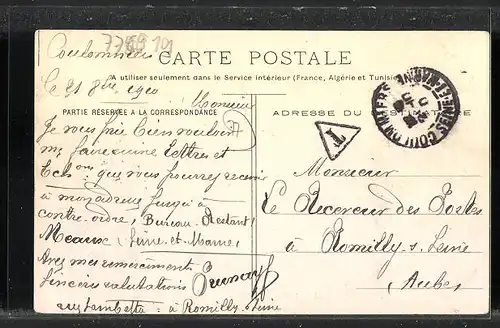 77669 101
Coulommiers
CARTE POSTALE
Le 21 8bre 1920
(A utiliser seulement dans le Service intérieur (France, Algérie et Tunisie
Monsieur
PARTIE RÉSERVÉE A LA CORRESPONDANCE
ADRESSE DU DESTINATAIRE
COULOMMIERS
SEINE ET MARNE
T
Je vous prie bien vouloir
me faire suivre lettres et
que vous pourrez recevoir
à mon adresse jusqu'à
contre-ordre, Bureau Restant,
Meaux (Seine-et-Marne)
Avec mes remerciements
sincères salutations
rue Gambetta à Romilly s. Seine
Monsieur
Le Receveur des Postes
à Romilly s. Seine
(Aube)